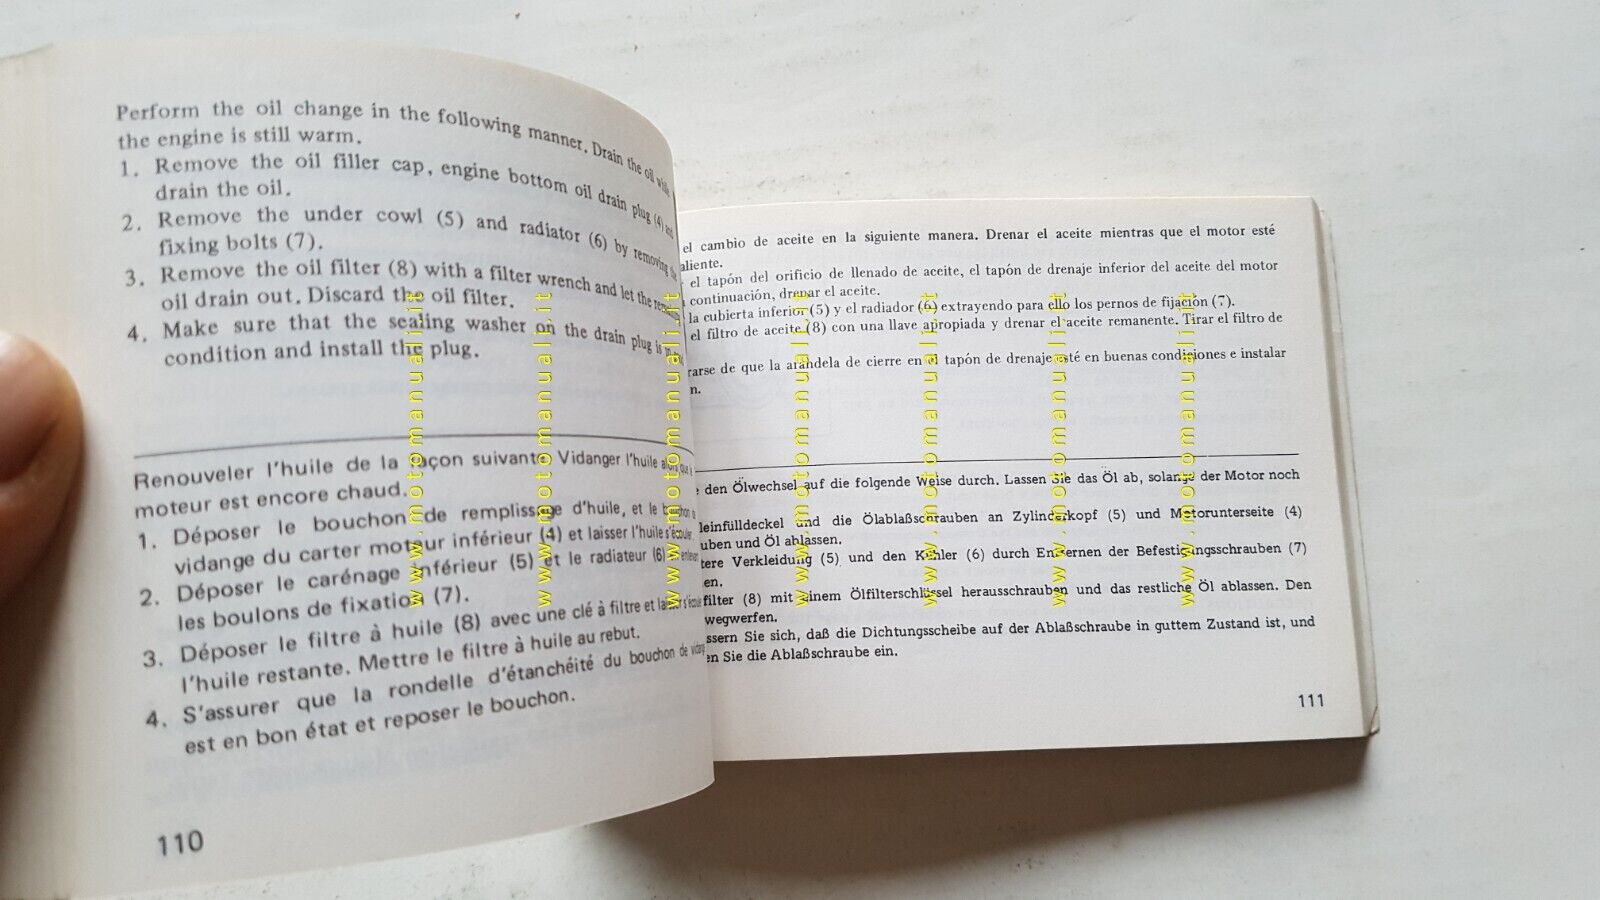 Perform the oil change in the following manner. Drain the oil while
the engine is still warm.
1. Remove the oil filler cap, engine bottom oil drain plug (4) and
drain the oil.
2. Remove the under cowl (5) and radiator (6) by removing the
fixing bolts (7).
3. Remove the oil filter (8) with a filter wrench and let the remaining
oil drain out. Discard the oil filter.
4. Make sure that the sealing washer on the drain plug is in
condition and install the plug.
Renouveler l'huile de la façon suivante Vidanger l'huile alors que
moteur est encore chaud.
1. Déposer le bouchon de remplissage d'huile, et le bouchon
vidange du carter moteur inférieur (4) et laisser l'huile s'écouler.
2. Déposer le carénage inférieur (5) et le radiateur (6)
les boulons de fixation (7).
3. Déposer le filtre à huile (8) avec une clé à filtre et laisser s'écouler
l'huile restante. Mettre le filtre à huile au rebut.
4. S'assurer que la rondelle d'étanchéité du bouchon de
est en bon état et reposer le bouchon.
110
el cambio de aceite en la siguiente manera. Drenar el aceite mientras que el motor esté
aliente.
el tapón del orificio de llenado de aceite, el tapón de drenaje inferior del aceite del motor
continuación, drenar el aceite.
la cubierta inferior (5) y el radiador (6) extrayendo para ello los pernos de fijación (7).
el filtro de aceite (8) con una llave apropiada y drenar el aceite remanente. Tirar el filtro de
rarse de que la arandela de cierre en el tapón de drenaje esté en buenas condiciones e instalar
n.
den Ölwechsel auf die folgende Weise durch. Lassen Sie das Öl ab, solange der Motor noch
leinfülldeckel und die Ölablaßschrauben an Zylinderkopf (5) und Motorunterseite (4)
uben und Öl ablassen.
tere Verkleidung (5) und den Kühler (6) durch Entfernen der Befestigungsschrauben (7)
en.
filter (8) mit einem Ölfilterschlüssel herausschrauben und das restliche Öl ablassen. Den
wegwerfen.
ssern Sie sich, daß die Dichtungsscheibe auf der Ablaßschraube in guttem Zustand ist, und
en Sie die Ablaßschraube ein.
111
www.motomanuali.it
www.motomanuali.it
www.motomanuali.it
www.motomanuali.it
www.motomanuali.it
www.motomanuali.it
www.motomanuali.it